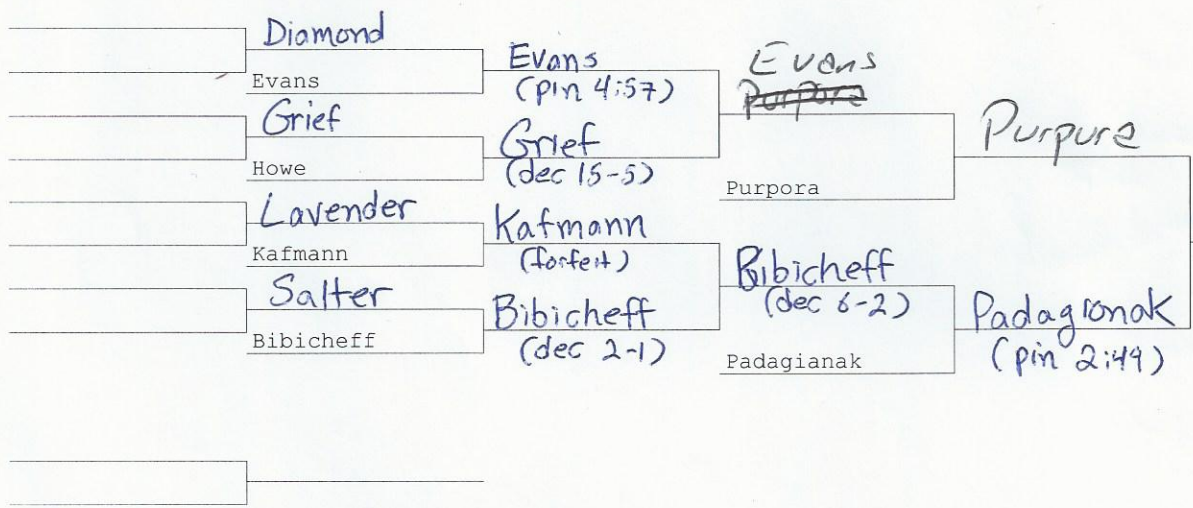 Diamond
Evans
Grief
Howe
Lavender
Kafmann
Salter
Bibicheff
Evans
(pin 4:57)
Grief
(dec 15-5)
Kafmann
(forfeit)
Bibicheff
(dec 2-1)
Evans
Purpura
Purpora
Bibicheff
(dec 6-2)
Padagianak
Purpura
Padagionak
(pin 2:49)